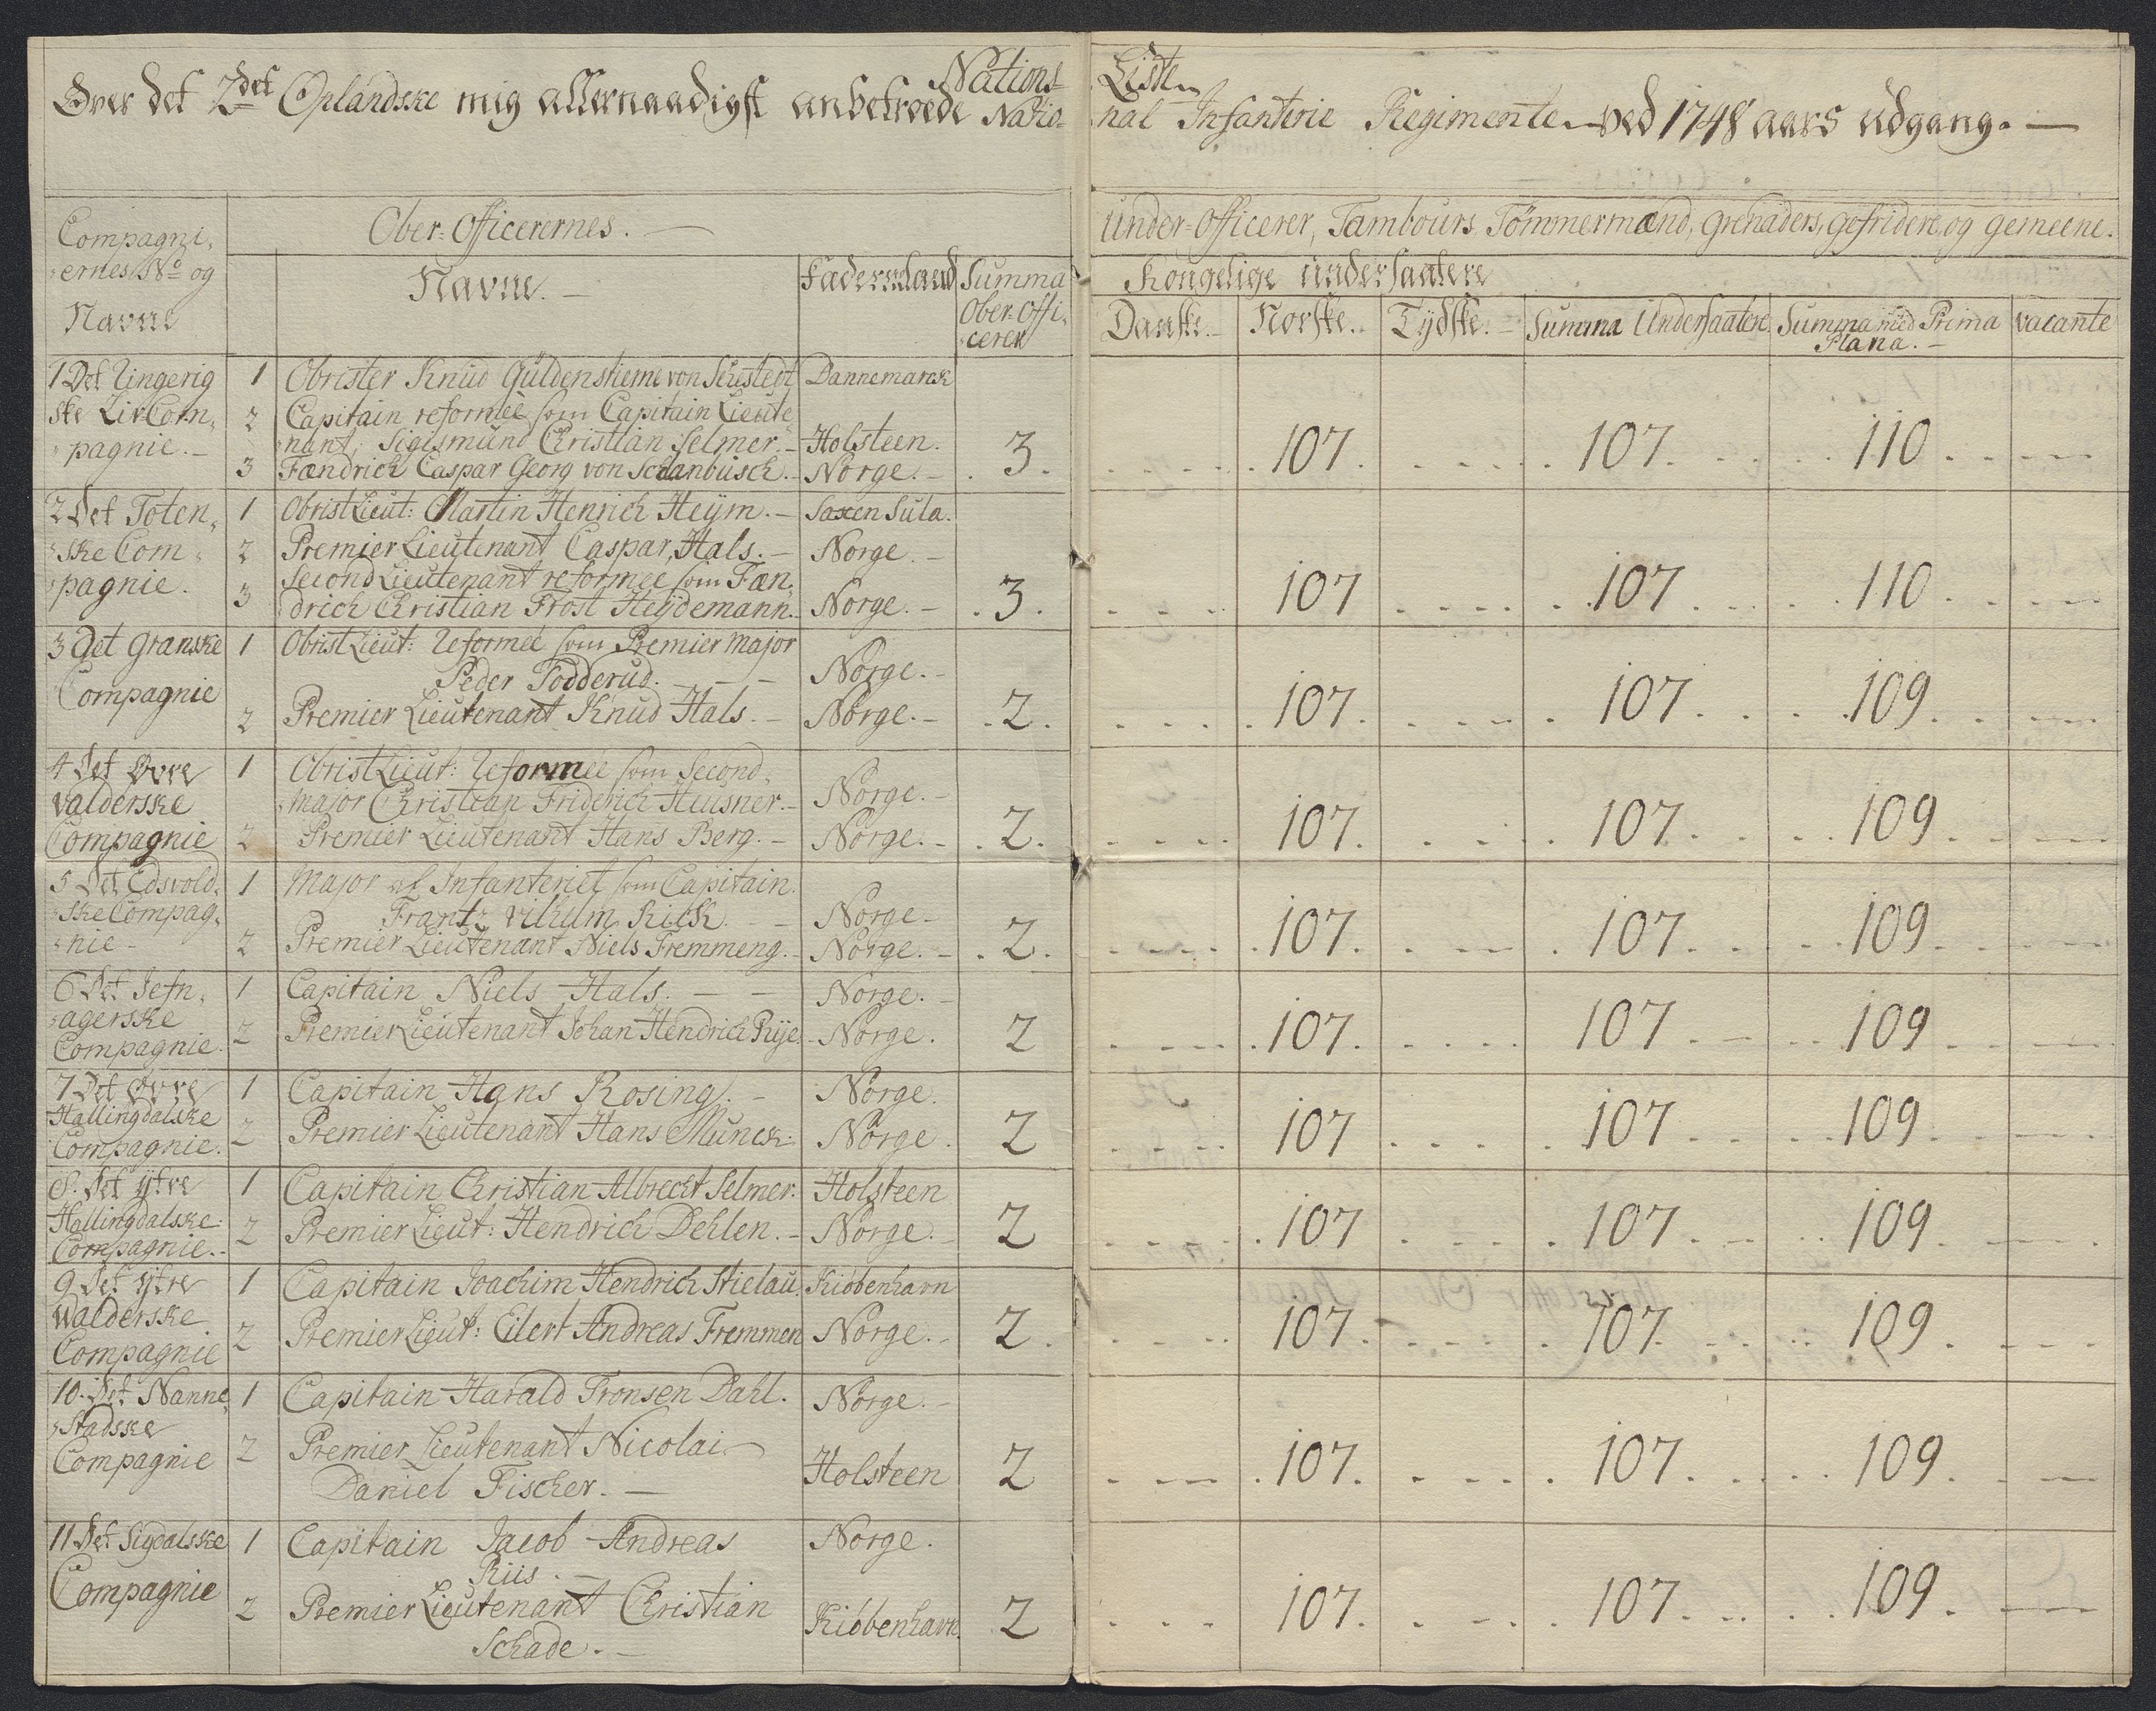 Nations Liste
Over det 2det Oplandske mig allernaadigst anbetroede Natio-
nal Infanterie Regimente ved 1748 aars udgang. —
Compagni-
ernes No og
Navne
Ober-Officerernes. —
Navne. —
Faderneland
Summa
Ober-Offi-
cerer
Under-Officerer, Tambours, Tömmermænd, grenaders, gefridere, og gemeene.
Kongelige undersaatere
Danske. — Norske. Tydske. — Summa Undersaatere. Summa med Prima vacante
Plana. —
1 Det Ringerig 1 Obrister Knud Güldenstierne von Sehestedt Dannemarck
ske Liv Com- 2 Capitain reformée som Capitain Lieute
pagnie. — nant, Sigismund Christian Selmer. — Holsteen.
3 Fændrich Caspar Georg von Schanbusch. — Norge. — 3. 107. 107. 110
2 Det Toten- 1 Obrist Lieut: Martin Henrich Heÿm. — Saxen Sula.
ske Com- 2 Premier Lieutenant Caspar Hals. — Norge. —
pagnie. Second Lieutenant reformée som Fæn-
3 drich Christian Frost Heÿdemann. Norge. — 3. 107 107 110
3 Det Granske 1 Obrist Lieut: Reformée som Premier Major
Compagnie Peder Todderud. — — — Norge. —
2 Premier Lieutenant Knud Hals. — Norge. — 2. 107. 107 109
4 Det Øvre 1 Obrist Lieut: Reformée som Second-
Valderske Major Christian Friderich Heusner. — Norge. —
Compagnie 2 Premier Lieutenant Hans Berg. — Norge. — 2. 107. 107. 109
5 Det Edsvold- 1 Major af Infanteriet som Capitain.
ske Compag- Frantz Vilhelm Rick. — Norge —
nie — 2 Premier Lieutenant Niels Fremmeng. — Norge. — 2. 107. 107. 109
6 Det Jefn- 1 Capitain Niels Hals. — — Norge. —
agerske 2 Premier Lieutenant Johan Hendrich Rÿe. Norge. 2 107. 107 109
Compagnie.
7 Det Øvre 1 Capitain Hans Rosing. — Norge.
Hallingdalske 2 Premier Lieutenant Hans Munck: Norge. 2 107 107 109
Compagnie.
8. Det ÿtre 1 Capitain Christian Albrecht Selmer. Holsteen
Hallingdalske 2 Premier Lieut: Hendrich Dehlen. — Norge. — 2 107 107 109
Compagnie. —
9 Det ÿtre 1 Capitain Joachim Hendrich Stielau. Kiöbenhavn
Walderske 2 Premier Lieut: Eilert Andreas Fremmen Norge. — 2. 107. 107 109
Compagnie
10. Det Nanne- 1 Capitain Harald Tronsen Dahl. Norge. —
Stadske 2 Premier Lieutenant Nicolai
Compagnie Daniel Fischer. — Holsteen 2 107. 107 109
11 Det Sigdalske 1 Capitain Jacob Andreas Norge.
Compagnie Riis. —
2 Premier Lieutenant Christian
Schade. — Kiöbenhavn. 2 107. 107. 109